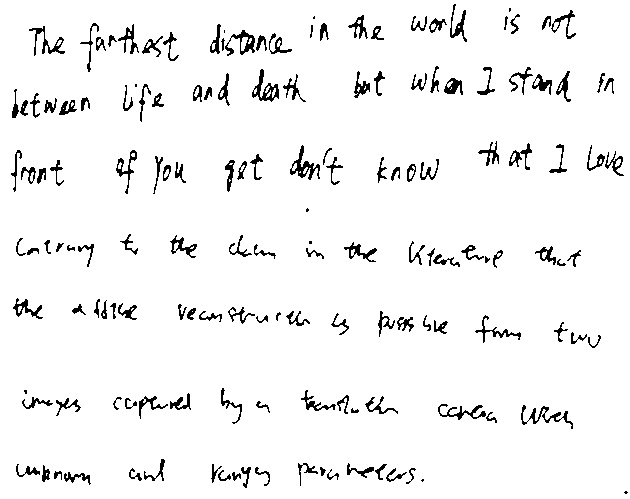 The farthest distance in the world is not
between life and death but when I stand in
front of you yet don't know that I love
Contrary to the claim in the literature that
the affine reconstruction is possible from two
images captured by a translation camera with
unknown and varying parameters.